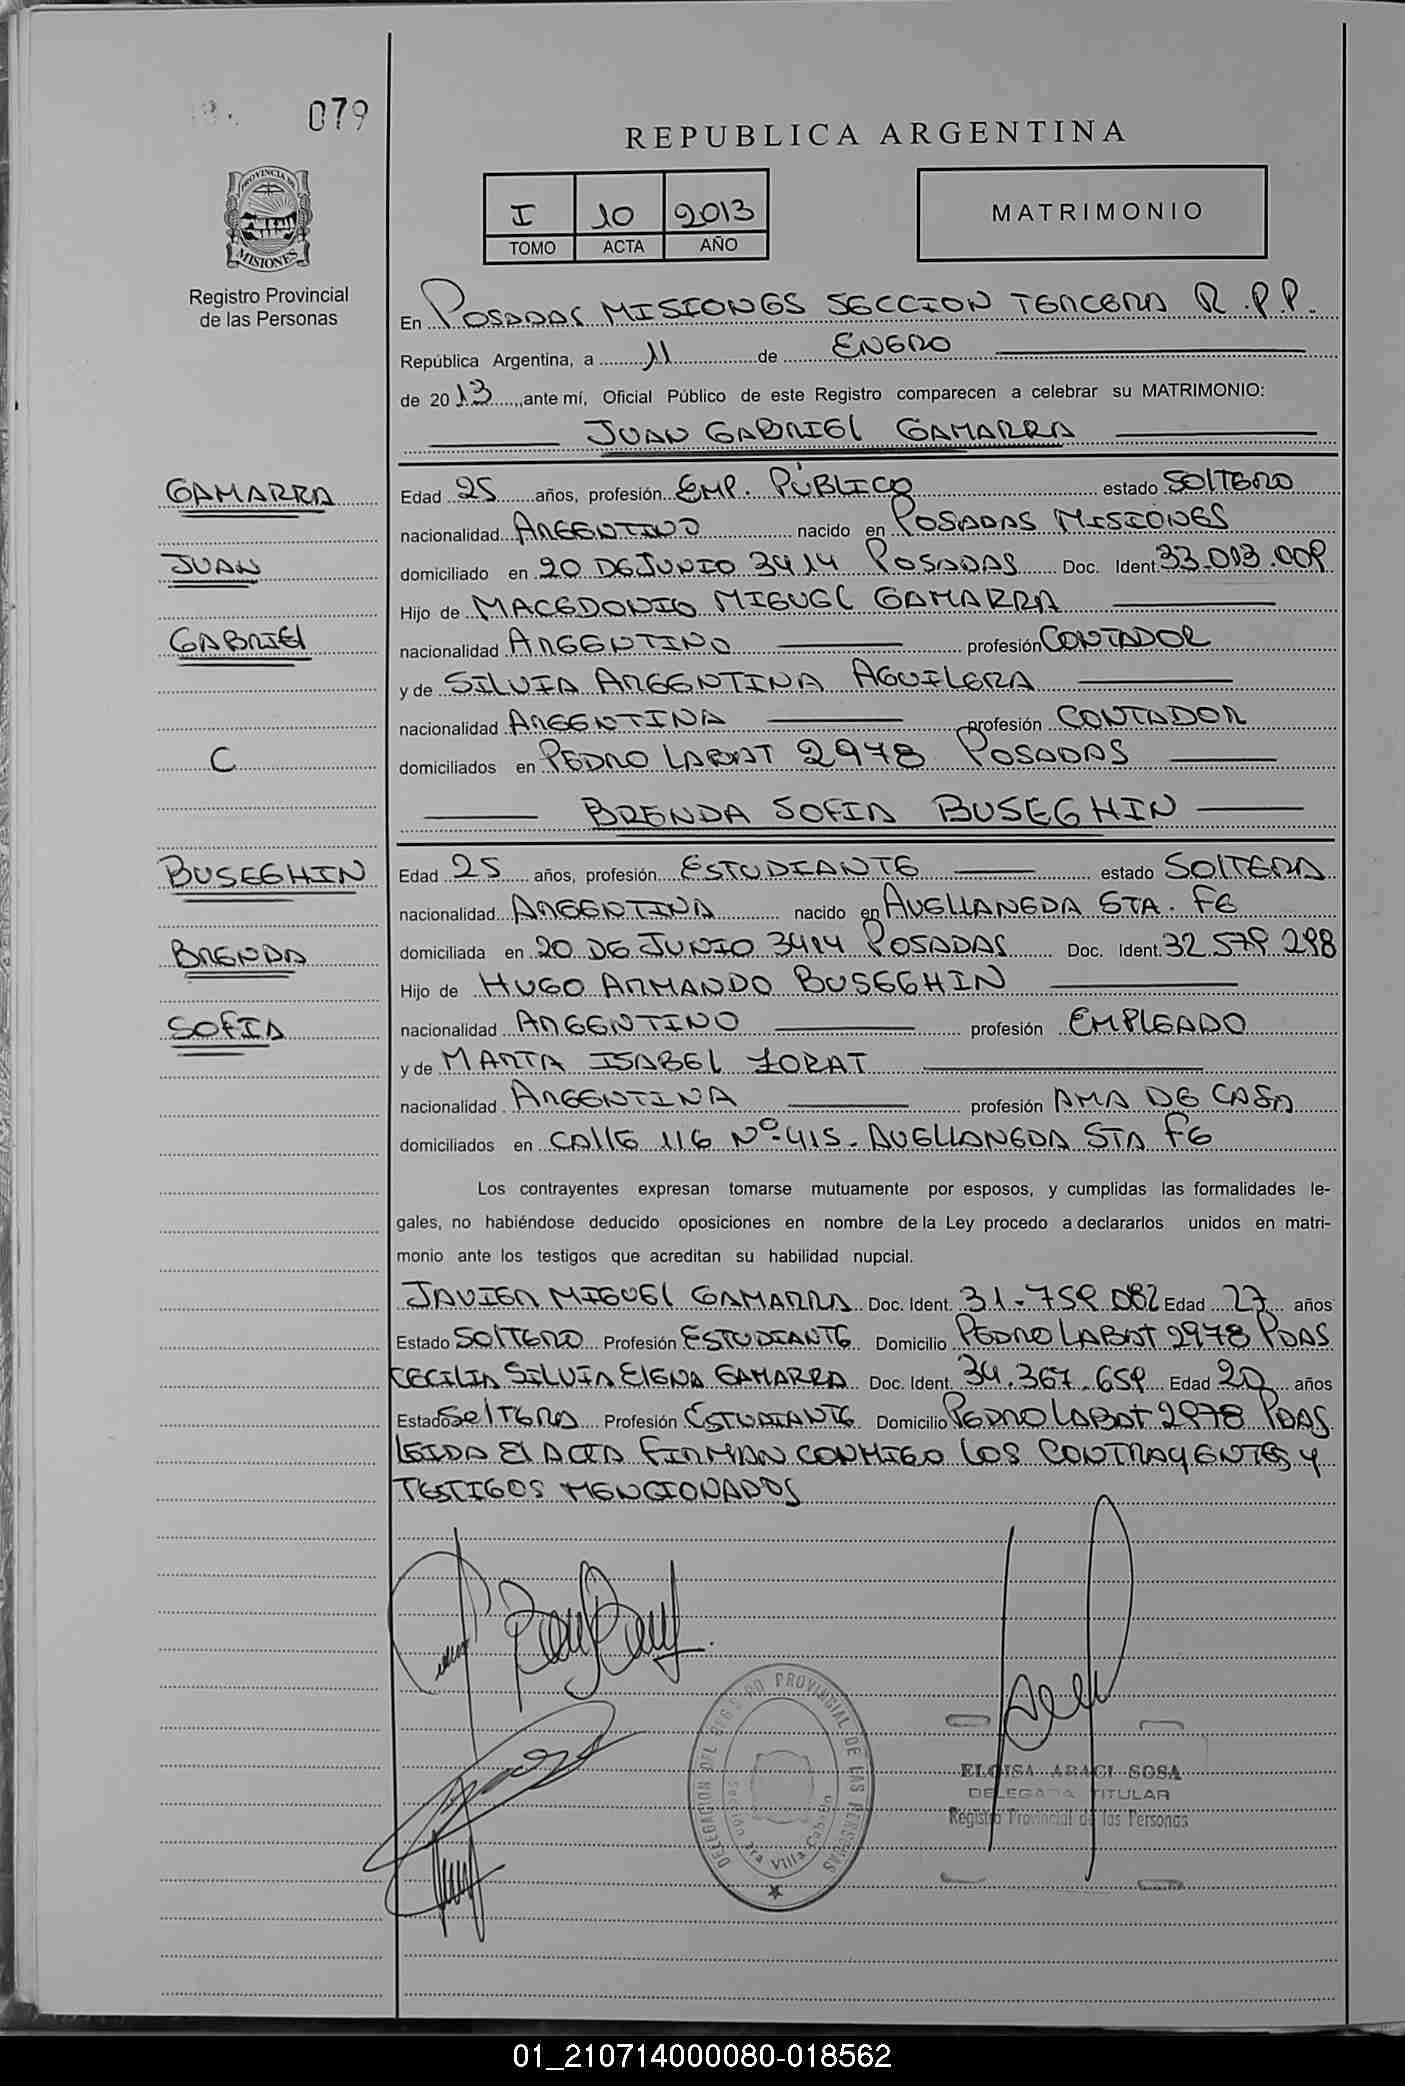 079
REPUBLICA ARGENTINA
PROVINCIA DE
MISIONES
Registro Provincial
de las Personas
I 10 2013
TOMO ACTA AÑO
MATRIMONIO
En POSADAS MISIONES SECCION TERCERA R.P.P.
República Argentina, a 11 de ENERO
de 2013, ante mí, Oficial Público de este Registro comparecen a celebrar su MATRIMONIO:
JUAN GABRIEL GAMARRA
GAMARRA
JUAN
GABRIEL
C
Edad 25 años, profesión EMP. PÚBLICO estado SOLTERO
nacionalidad ARGENTINO nacido en POSADAS MISIONES
domiciliado en 20 DE JUNIO 3414 POSADAS Doc. Ident. 33.013.009
Hijo de MACEDONIO MIGUEL GAMARRA
nacionalidad ARGENTINO profesión CONTADOR
y de SILVIA ARGENTINA AGUILERA
nacionalidad ARGENTINA profesión CONTADOR
domiciliados en PEDRO LABAT 2978 POSADAS
BRENDA SOFIA BUSEGHIN
BUSEGHIN
BRENDA
SOFIA
Edad 25 años, profesión ESTUDIANTE estado SOLTERA
nacionalidad ARGENTINA nacido en AVELLANEDA STA. FE
domiciliada en 20 DE JUNIO 3414 POSADAS Doc. Ident. 32.579.298
Hijo de HUGO ARMANDO BUSEGHIN
nacionalidad ARGENTINO profesión EMPLEADO
y de MARTA ISABEL ZORAT
nacionalidad ARGENTINA profesión AMA DE CASA
domiciliados en CALLE 116 Nº 415. AVELLANEDA STA FE
Los contrayentes expresan tomarse mutuamente por esposos, y cumplidas las formalidades le-
gales, no habiéndose deducido oposiciones en nombre de la Ley procedo a declararlos unidos en matri-
monio ante los testigos que acreditan su habilidad nupcial.
JAVIER MIGUEL GAMARRA Doc. Ident. 31.759.082 Edad 27 años
Estado SOLTERO Profesión ESTUDIANTE Domicilio PEDRO LABAT 2978 PDAS
CECILIA SILVIA ELENA GAMARRA Doc. Ident. 34.367.659 Edad años
Estado SOLTERA Profesión ESTUDIANTE Domicilio PEDRO LABAT 2978 PDAS
LEIDA EL ACTA FIRMAN CONMIGO LOS CONTRAYENTES Y
TESTIGOS MENCIONADOS
DELEGACION DEL REGISTRO PROVINCIAL DE LAS PERSONAS
Sección 3ra Villa Cabello
ELOISA ARACI SOSA
DELEGADA TITULAR
Registro Provincial de las Personas
01_210714000080-018562